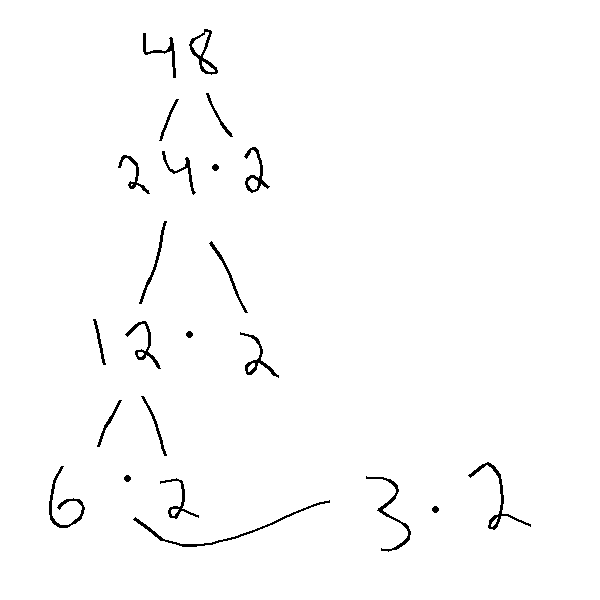 48
24·2
12·2
6·2 3·2